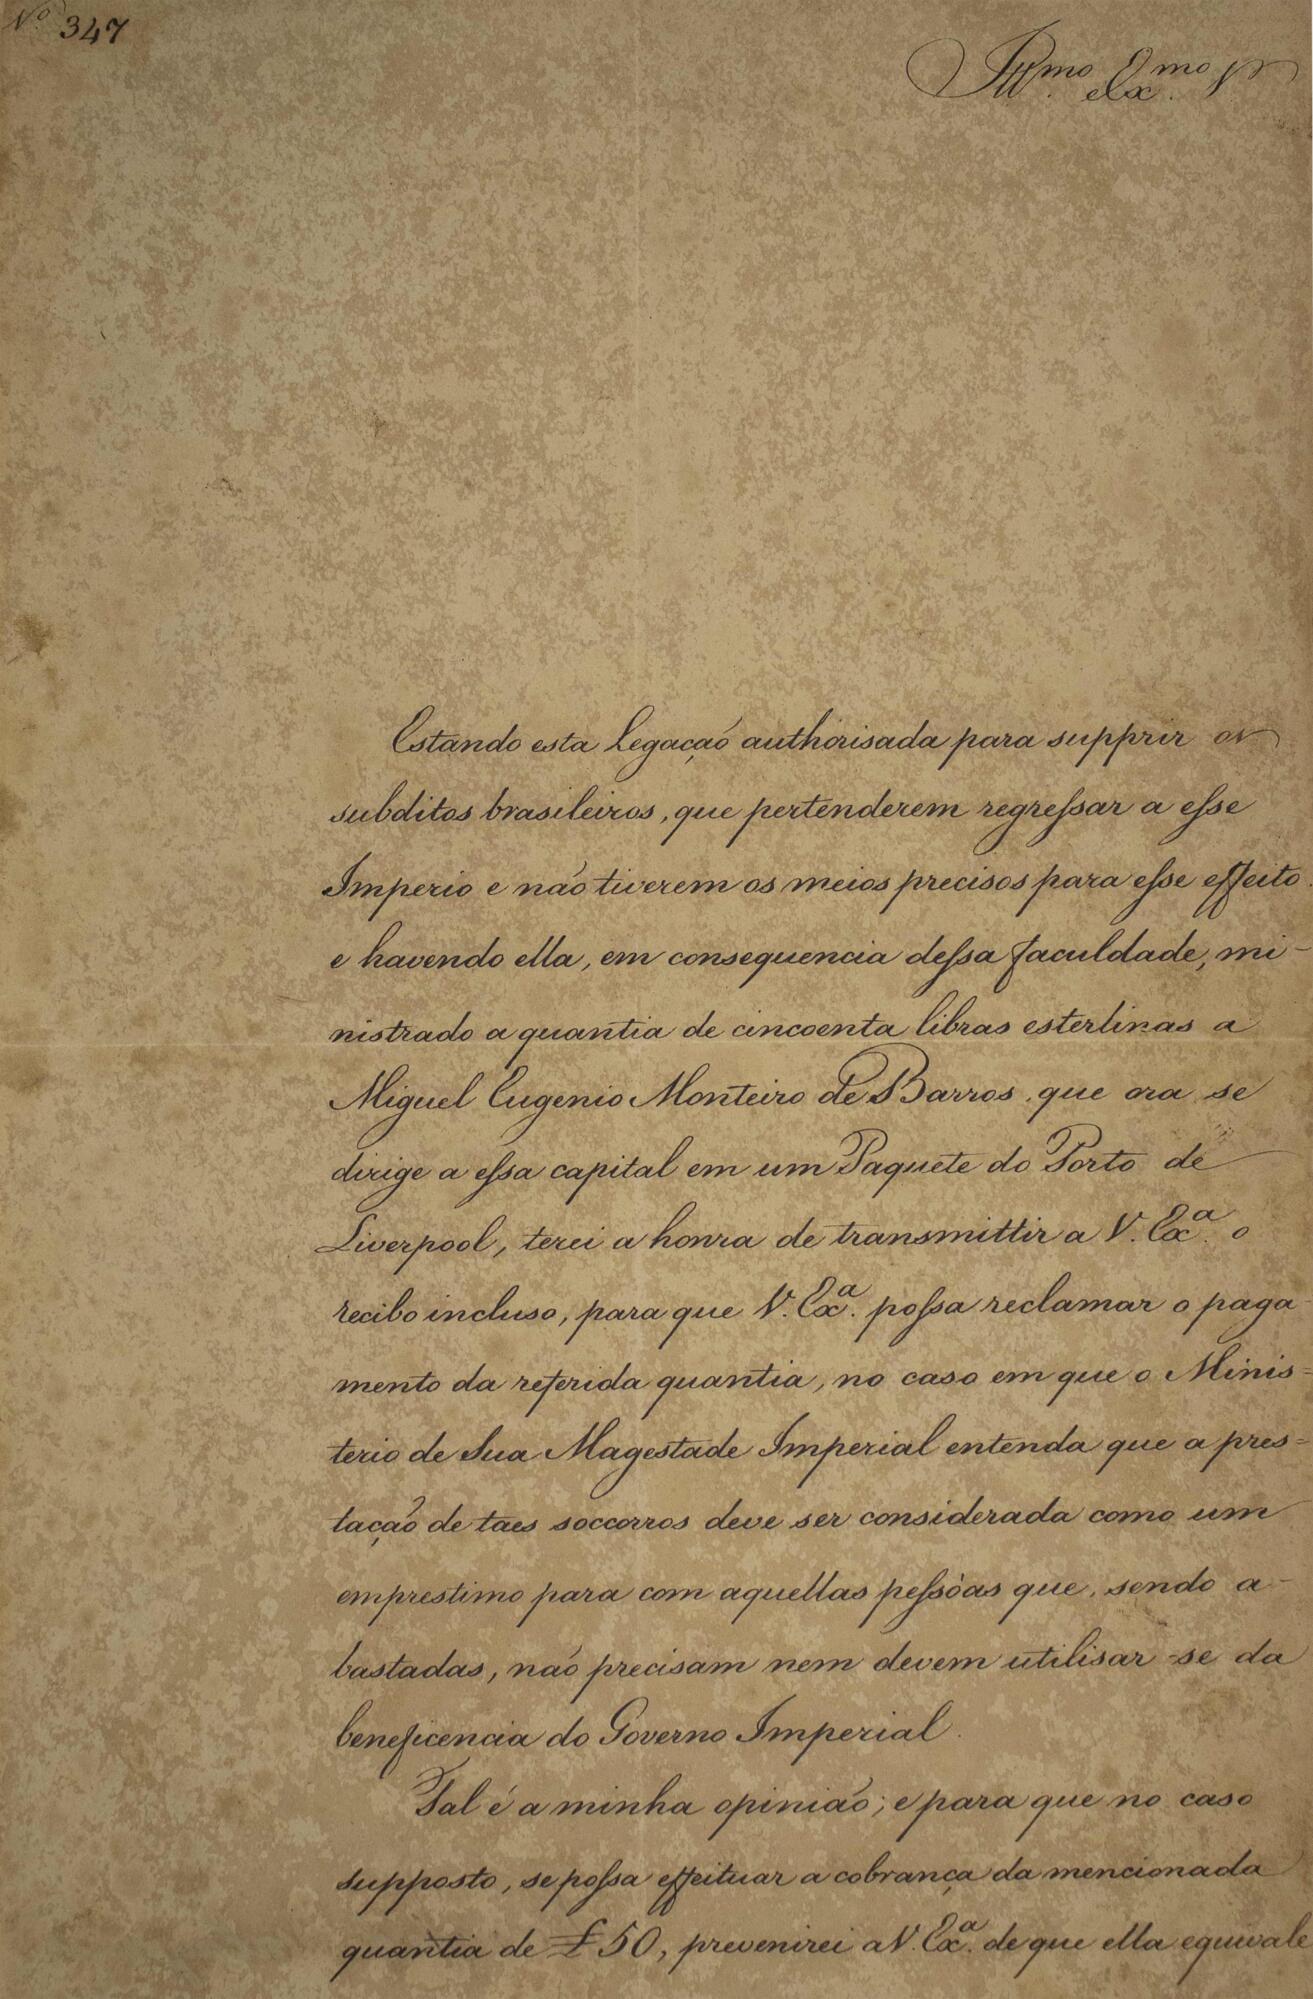 Nº 347
Illmo. Exmo. Sr
Estando esta Legação authorisada para supprir os
subditos brasileiros, que pertenderem regressar a esse
Imperio e não tiverem os meios precisos para esse effeito
e havendo ella, em consequencia dessa faculdade, mi-
nistrado a quantia de cincoenta libras esterlinas a
Miguel Eugenio Monteiro de Barros, que ora se
dirige a essa capital em um Paquete do Porto de
Liverpool, terei a honra de transmittir a V. Exª. o
recibo incluso, para que V. Exª. possa reclamar o paga-
mento da referida quantia, no caso em que o Minis-
terio de Sua Magestade Imperial entenda que a pres-
tação de taes soccorros deve ser considerada como um
emprestimo para com aquellas pessòas que, sendo a-
bastadas, não precisam nem devem utilisar-se da
beneficencia do Governo Imperial.
Tal é a minha opinião; e para que no caso
supposto, se possa effeituar a cobrança da mencionada
quantia de £ 50, prevenirei a V. Exª. de que ella equivale